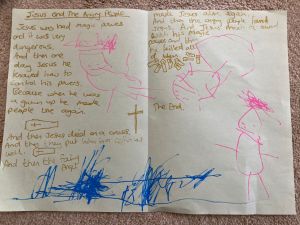 Jesus and The Angry People
Jesus was bad magic powers
and it was very
dangerous.
And then one
day Jesus he
learned how to
control his powers.
Because when he was
a grown up he made
people live again.
And then Jesus died on a cross.
And then they put
And then the Fairy
made Jesus alive again.
And then the angry people
with his magic
killed all
The End.